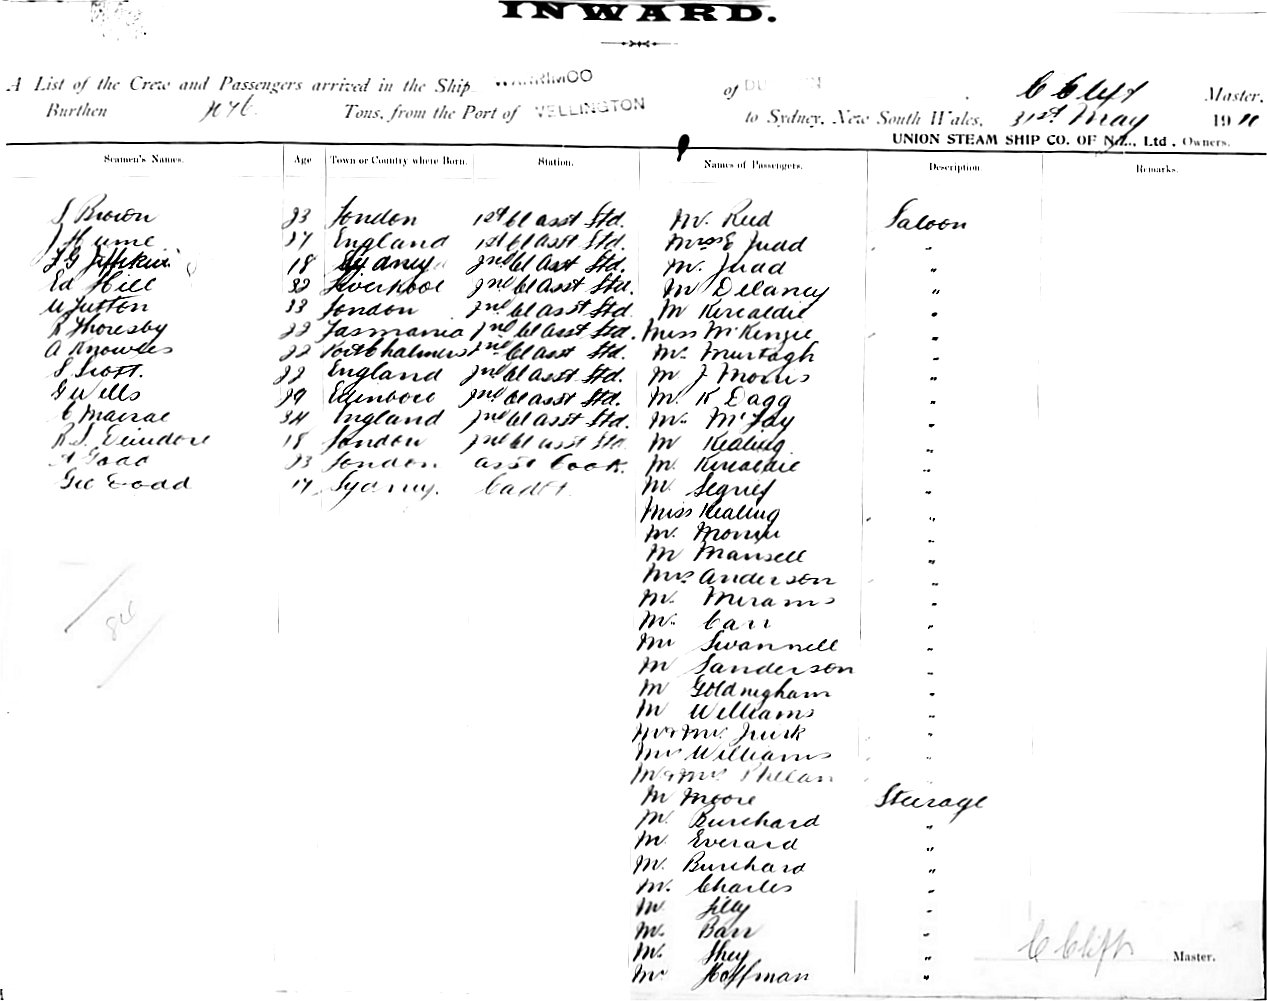 INWARD.
A List of the Crew and Passengers arrived in the Ship WARRIMOO of C Clift Master.
Burthen Tons, from the Port of WELLINGTON to Sydney, New South Wales, 31st May 19 11
UNION STEAM SHIP CO. OF N.Z., Ltd, Owners.
Seamen's Names. Age Town or Country where Born. Station. Names of Passengers. Description Remarks.
S Brown 23 London 1st Cl asst Std. Mr. Reed Saloon
J Hume 27 England 1st Cl asst Std. Judd "
18 Sydney 2nd Cl Asst Std. Mr. Judd "
Ed Hill 32 Liverpool 2nd Cl Asst Std. Mr Delaney "
W Tutton 33 London 2nd Cl asst Std. Mr Kircaldie "
R Thoresby 22 Tasmania 2nd Cl Asst Std. Miss McKenzie "
A Knowles 22 Port Chalmers 2nd Cl Asst Std. Mr. Murtagh "
S Scott. 22 England 2nd Cl Asst Std. Mr J Morris "
G Wells 29 Edinboro 2nd Cl Asst Std. Mr. K Dagg "
C Macrae 34 England 2nd Cl Asst Std. Mr. McFay "
R.S. 18 London 2nd Cl asst Std. Mr Kealing "
A Gadd 23 London asst Cook. Mr. Kircaldie "
Geo Dodd 17 Sydney. Cadet. Mr. "
Miss Kealing "
Mr. "
Mr Mansell "
Mrs Anderson "
Mr. Mirams "
Mr. Carr "
Mr Swannell "
Mr Sanderson "
Mr Goldingham "
Mr Williams "
Mr & Mrs. "
Mrs Williams "
Mr & Mrs Phelan "
Mr Moore Steerage
Mr. Burchard "
Mr. Everard "
Mr. Burchard "
Mr. Charles "
Mr. Lilly "
Mr. Barr "
Mr. Shey "
Mr Hoffman "
C Clift Master.